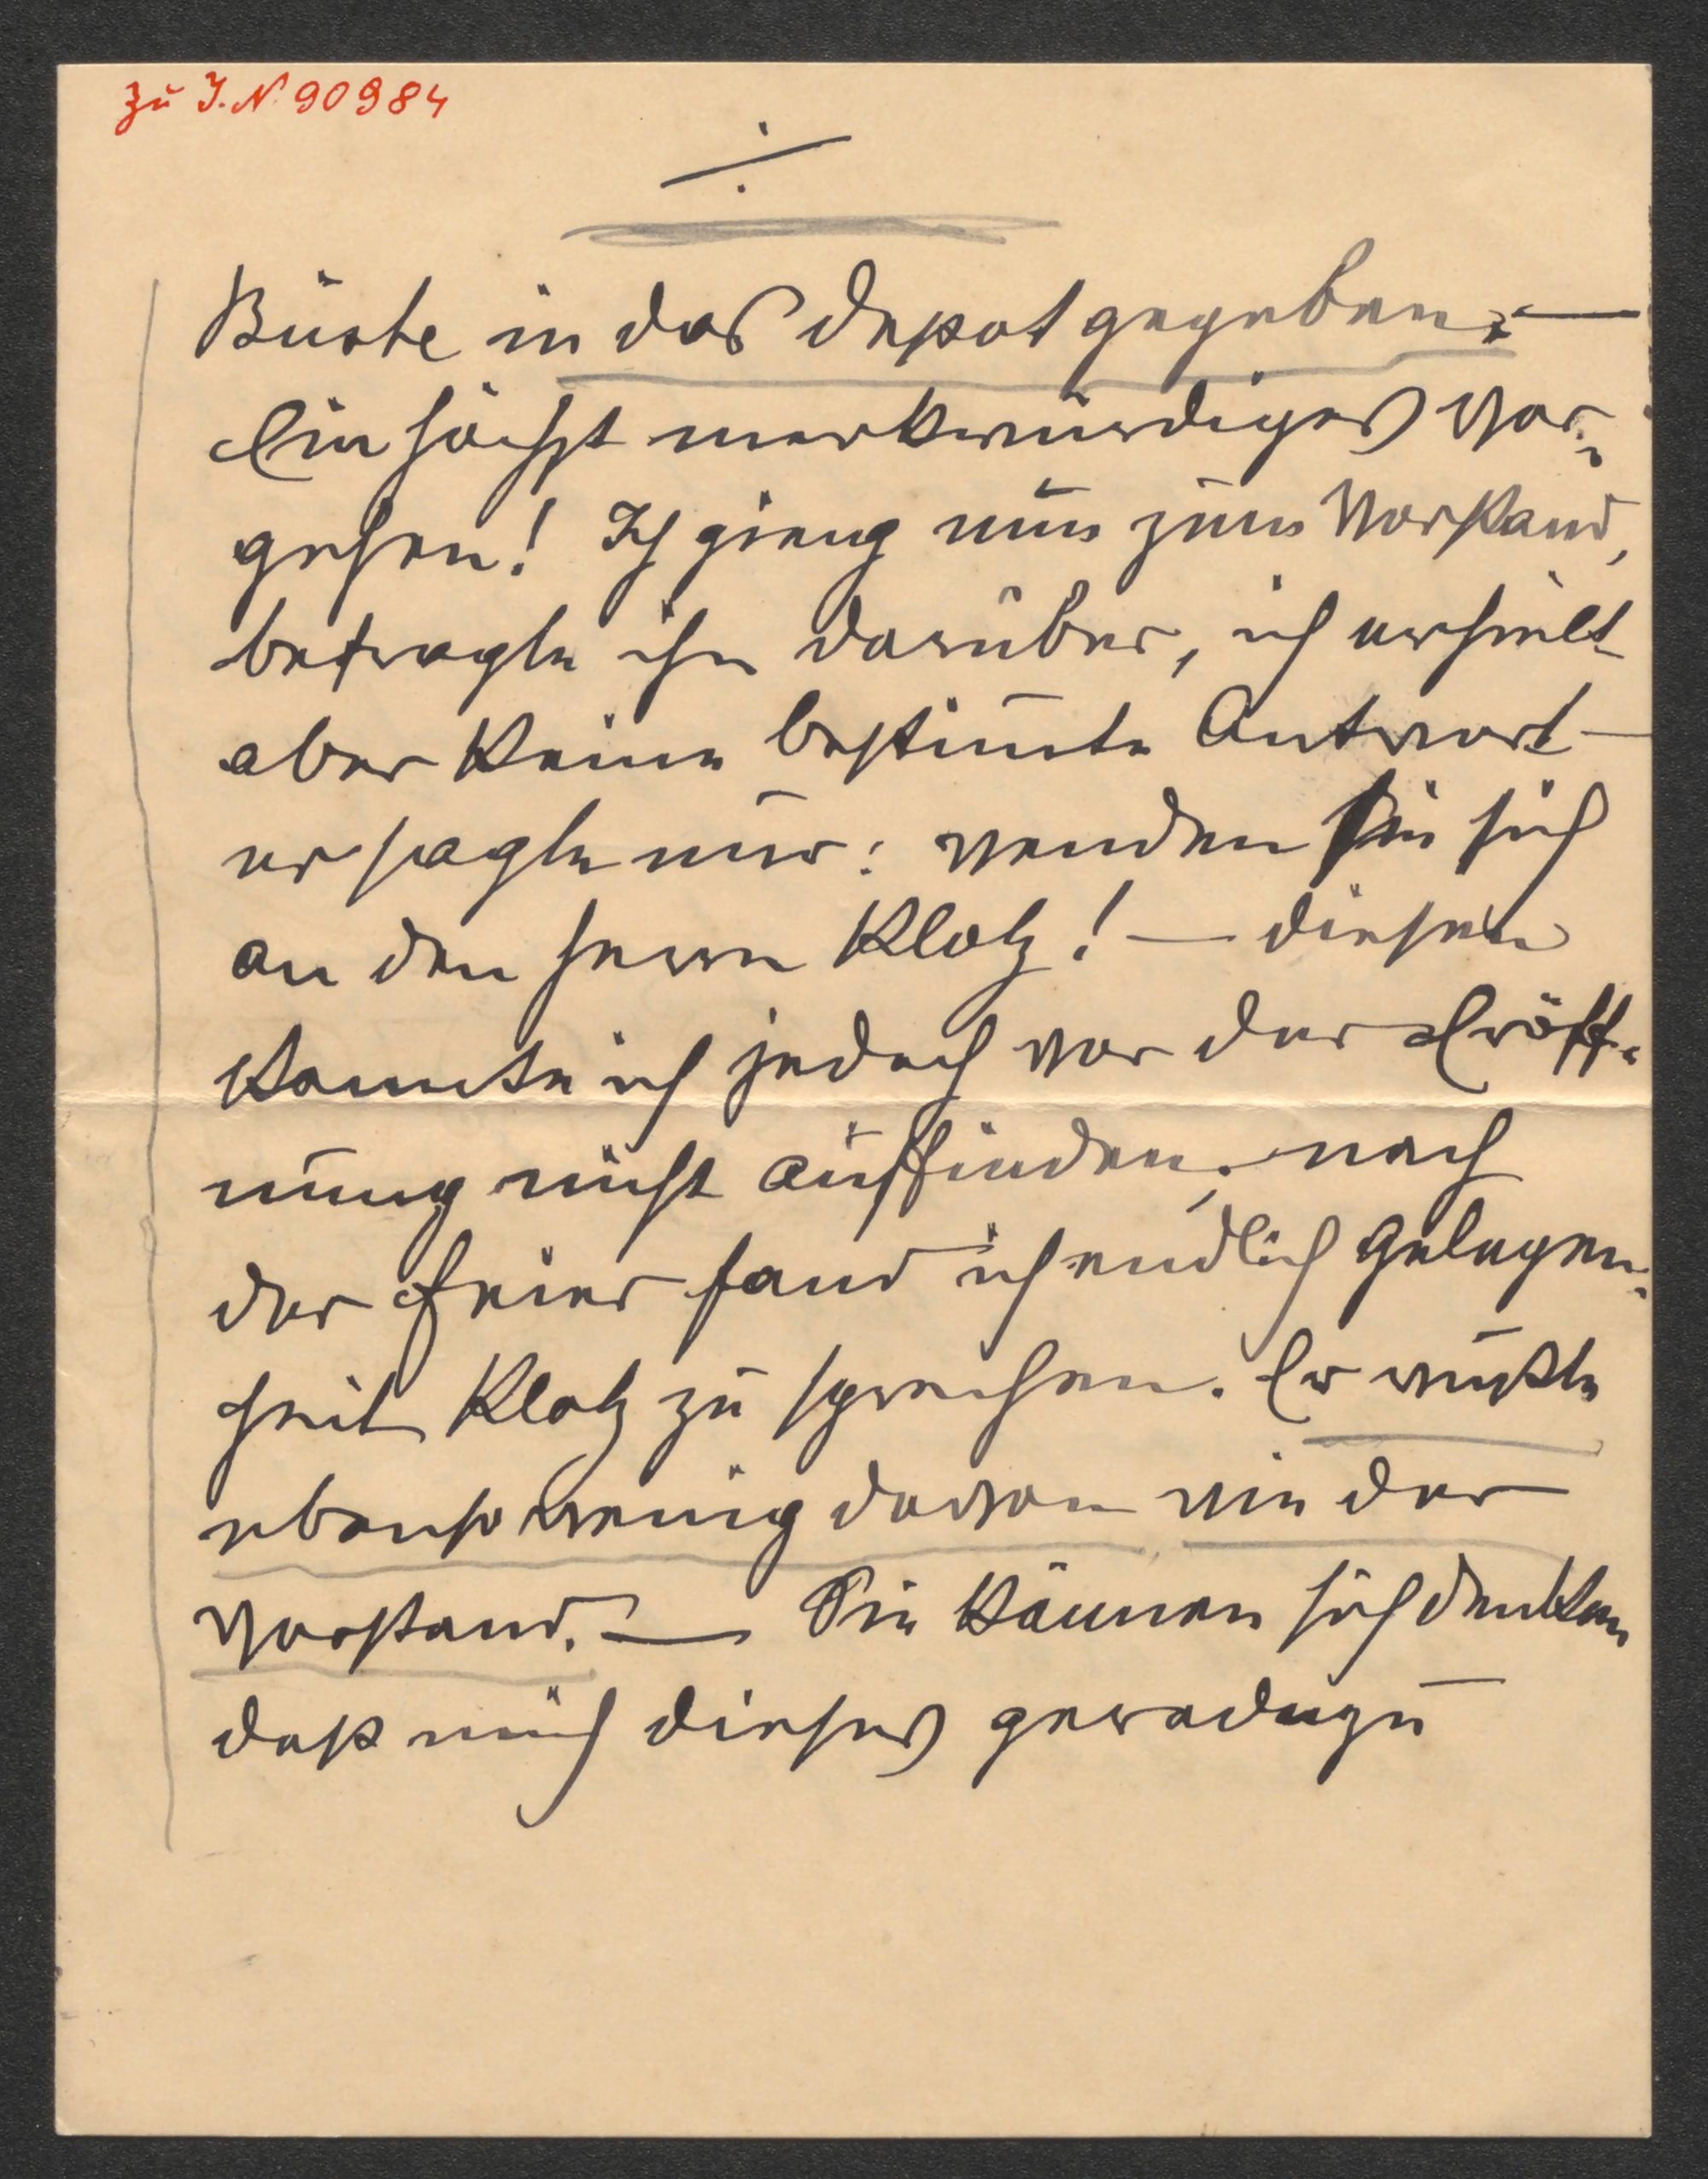 zu I.N. 90984
./.
Büste in das Depot gegeben. —
Ein höchst merkwürdiges Vor-
gehen! Ich gieng nun zum Vorstand,
befragte ihn darüber, ich erhielt
aber keine bestim̅te Antwort —
er sagte nur: wenden Sie sich
an den Herrn Klotz! — diesen
konnte ich jedoch vor der Eröff-
nung nicht auffinden, nach
der Feier fand ich endlich Gelegen-
heit Klotz zu sprechen. Er wußte
ebenso wenig davon wie der
Vorstand. — Sie können sich denken
daß mich dieses geradezu